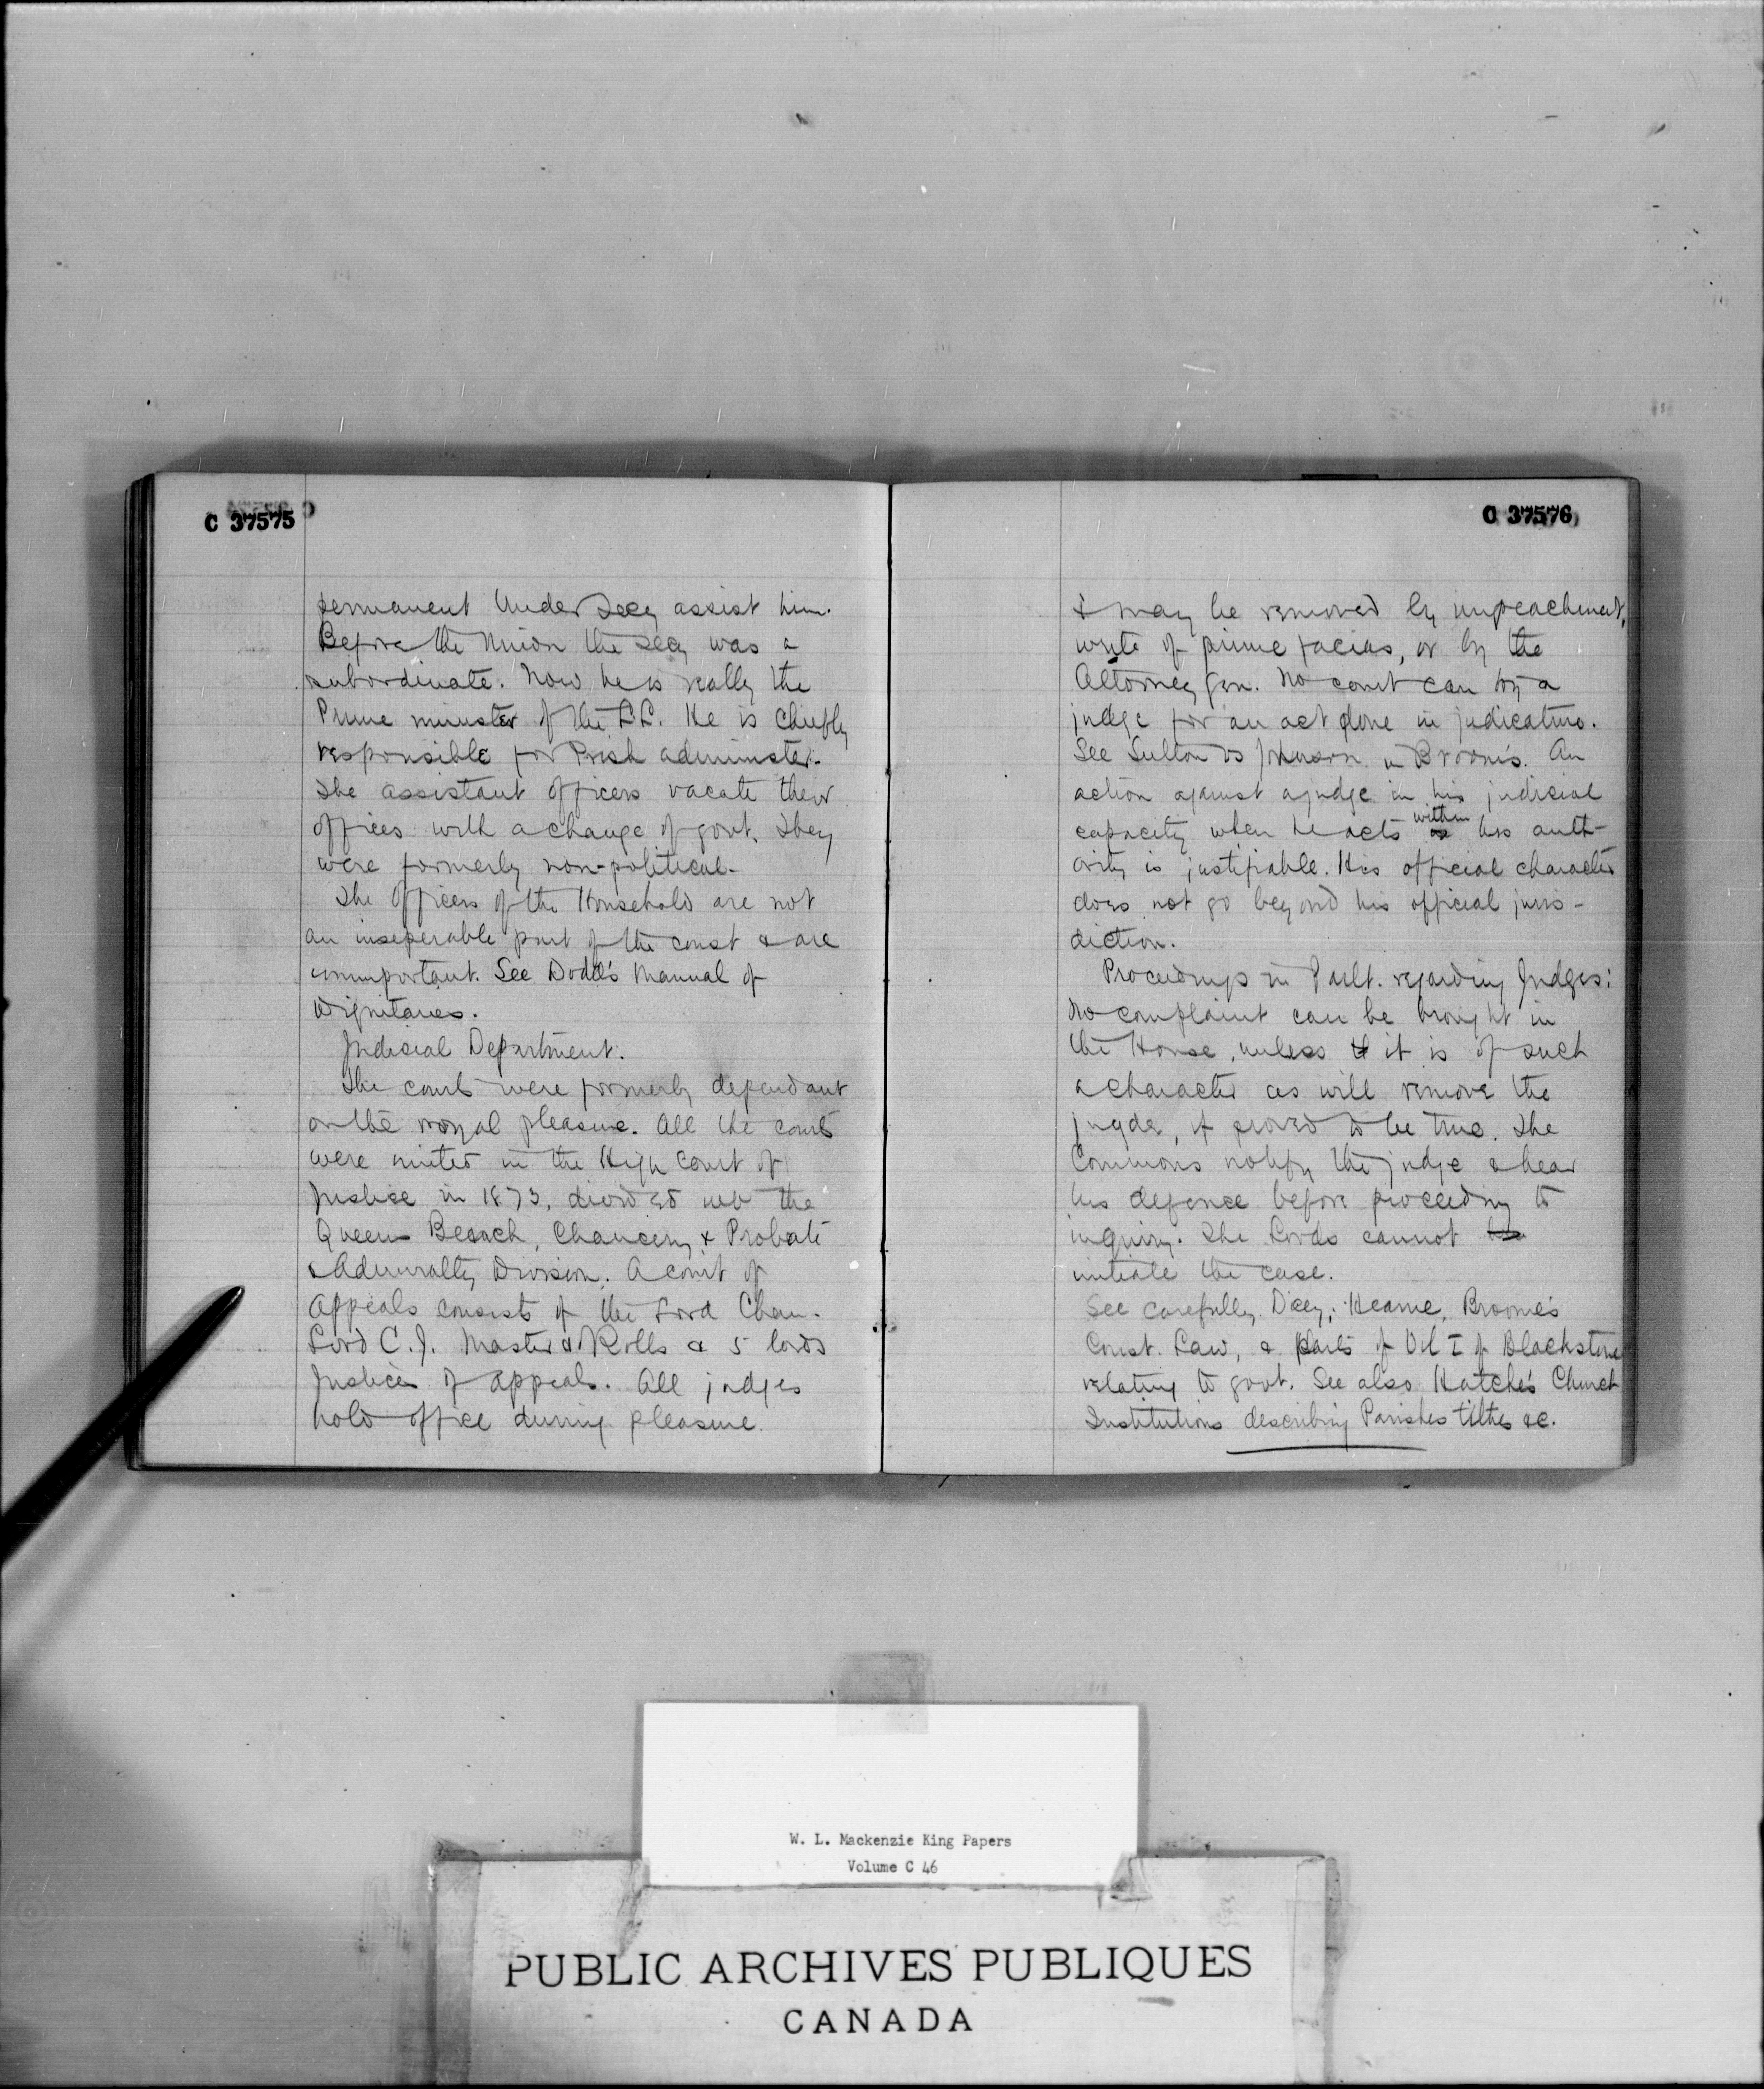 C 37575
permanent Under Secy assist him.
Before the Union the Secy was a
subordinate. Now he is really the
Prime minister of the L.L. He is chiefly
responsible for Irish administr.
The assistant officers vacate their
offices with a change of govt. They
were formerly non-political.
The Officers of the Household are not
an inseperable part of the const & are
unimportant. See Dodd's Manual of
Dignitaries.
Judicial Department.
The courts were formerly dependant
on the royal pleasure. All the courts
were united in the High Court of
Justice in 1873, divided into the
Queens Beanch, Chancery & Probate
& Admiralty Division. A court of
Appeals consists of the Lord Chan.
Lord C.J. Master of Rolls & 5 lords
Justices of appeals. All judges
hold office during pleasure.
C 37576
& may be removed by impeachment,
write of prime facias, or by the
Attorney Gen. No court can try a
judge for an act done in judicature.
See Sutton vs Johnson in Broom's. An
action against a judge in his judicial
capacity when he acts within his auth-
ority is justifiable. His official character
does not go beyond his official juris-
diction.
Proceedings in Parlt. regarding Judges:
No complaint can be brought in
the House, unless it is of such
a character as will remove the
jugde, if proved to be true. The
Commons notify the judge & hear
his defence before proceeding to
inquiry. The Lords cannot
initiate the case.
See carefully Dicey, Hearne, Broome's
Const. Law, & parts of Vol I of Blackstone
relating to govt. See also Hatche's Church
Institutions describing Parishes tilthes &c.
W. L. Mackenzie King Papers
Volume C 46
PUBLIC ARCHIVES PUBLIQUES
CANADA